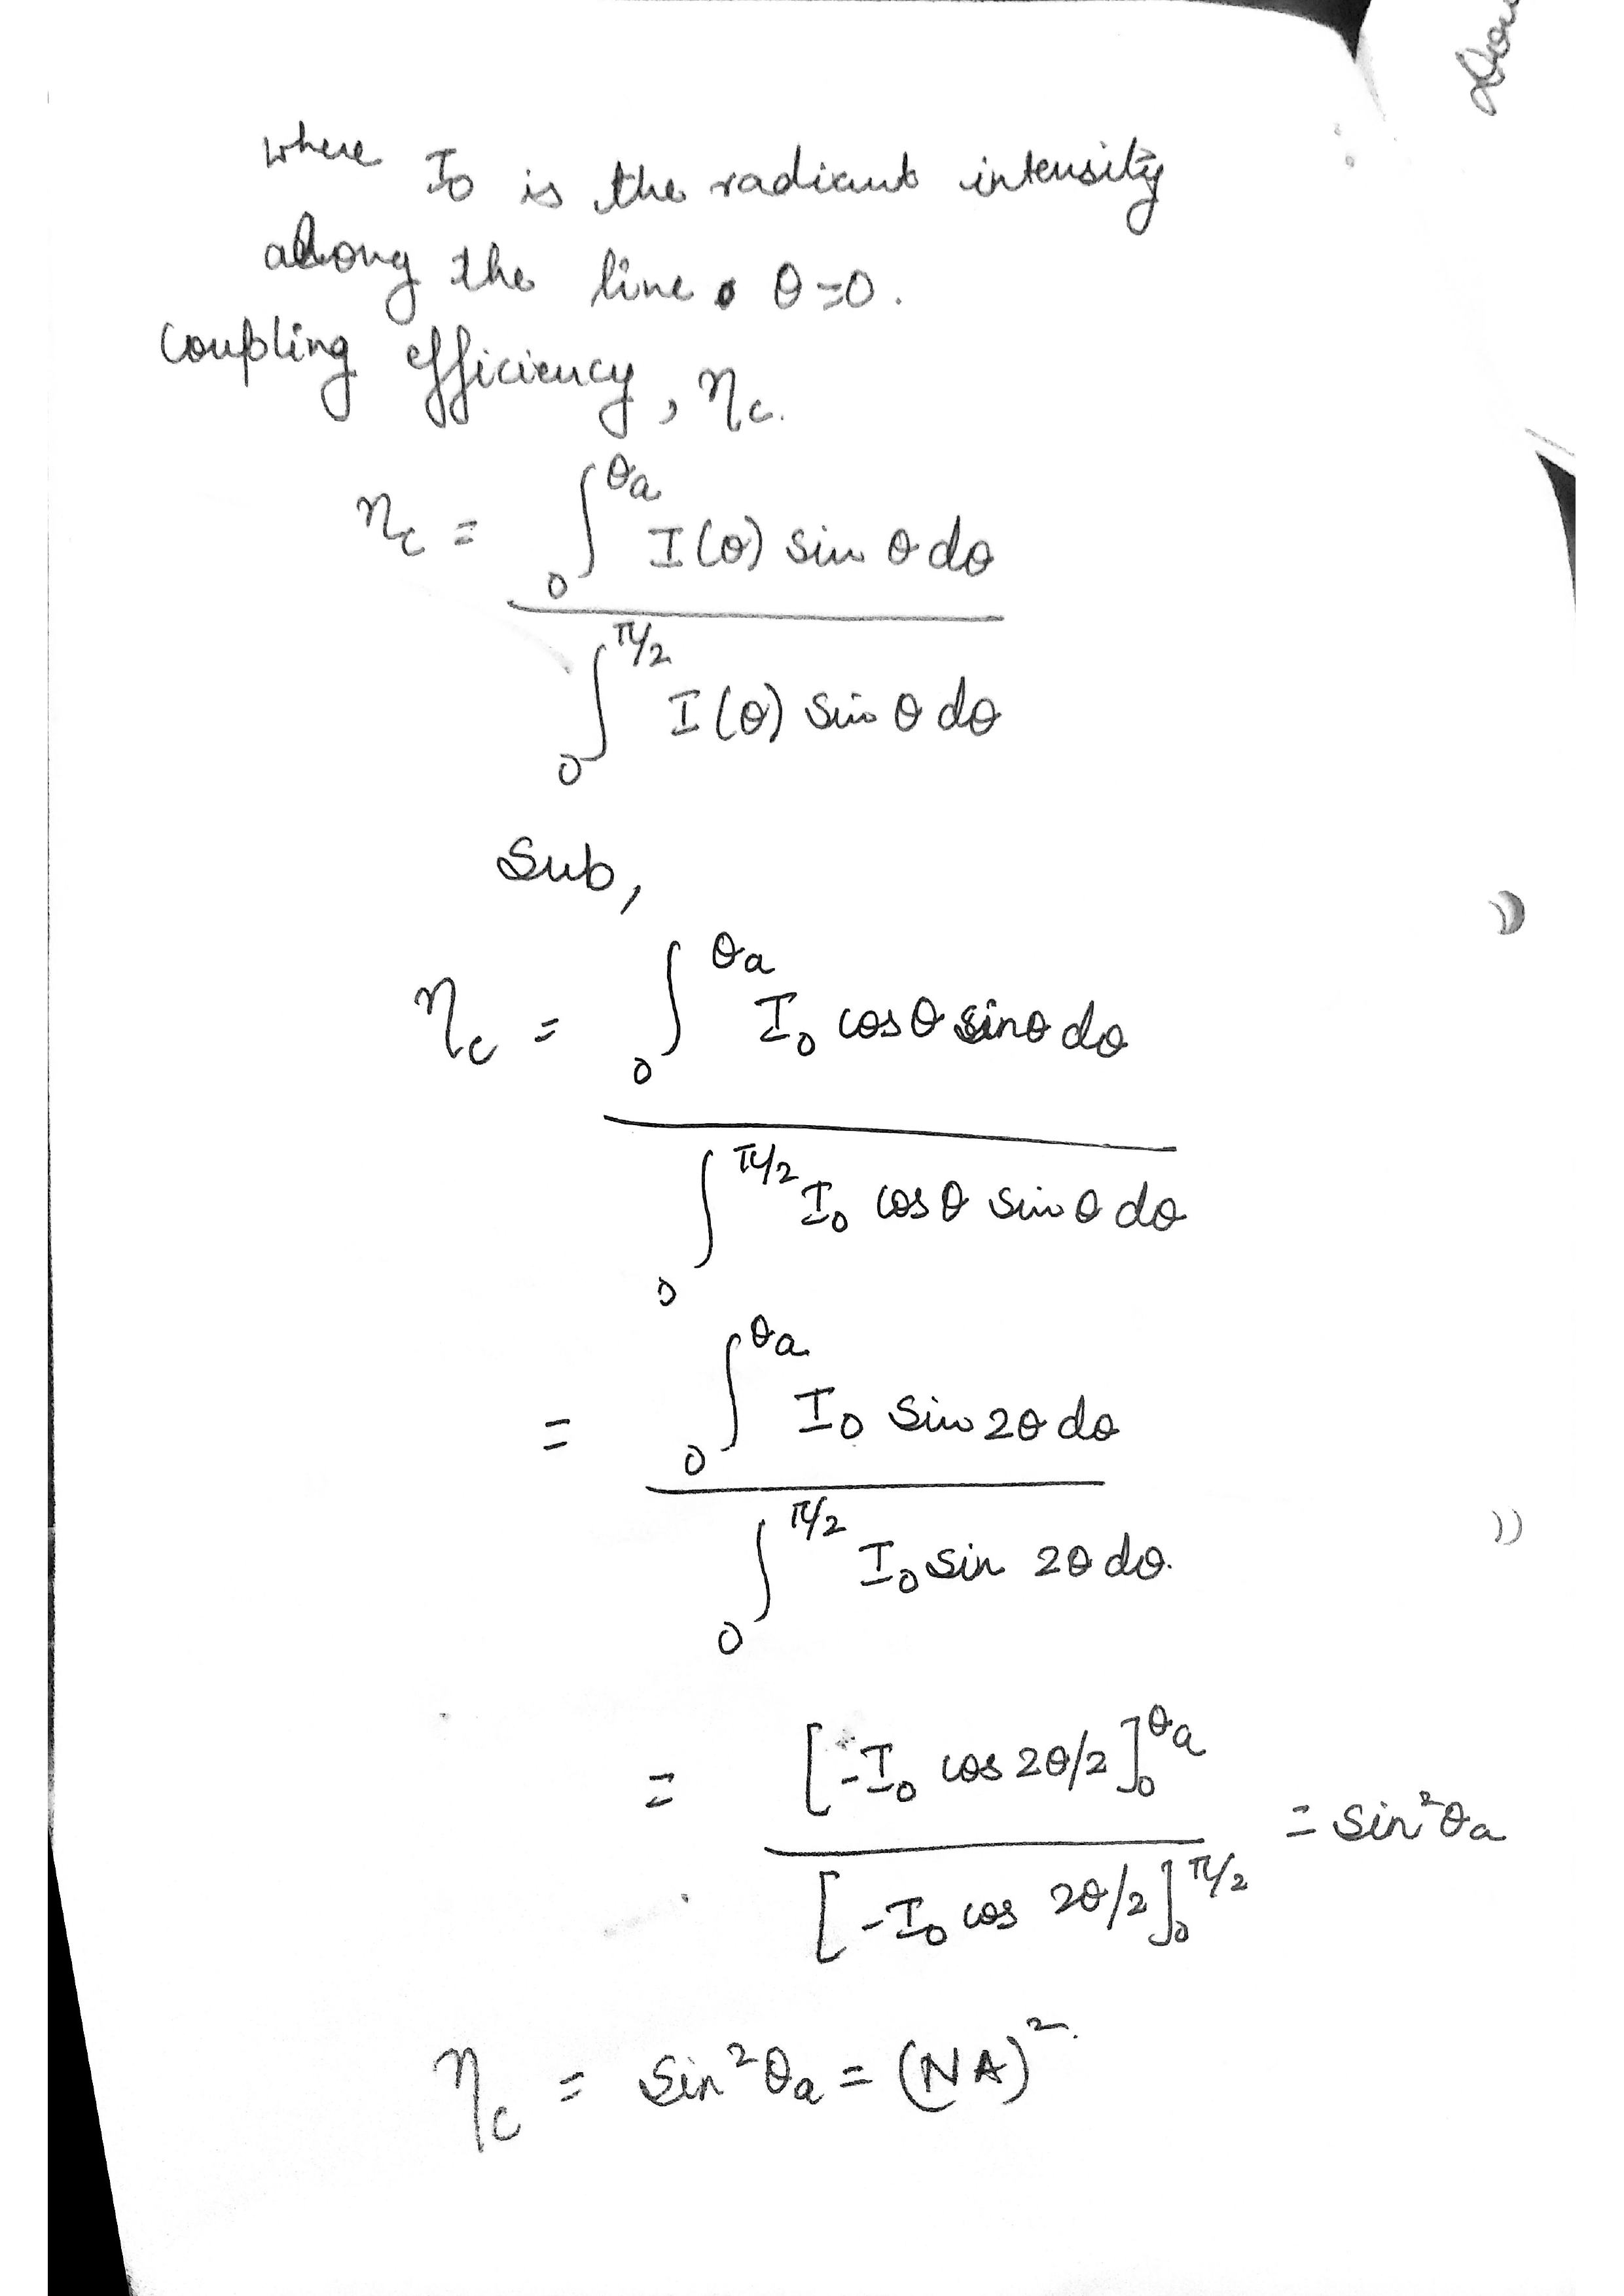 where I₀ is the radiant intensity
along the line θ=0.
Coupling efficiency, η_c.
η_c = ∫₀^θa I(θ) sin θ dθ
∫₀^π/2 I(θ) sin θ dθ
Sub,
η_c = ∫₀^θa I₀ cos θ sin θ dθ
∫₀^π/2 I₀ cos θ sin θ dθ
= ∫₀^θa I₀ sin 2θ dθ
∫₀^π/2 I₀ sin 2θ dθ.
= [-I₀ cos 2θ/2]₀^θa
= sin²θa
[-I₀ cos 2θ/2]₀^π/2
η_c = sin²θa = (NA)².